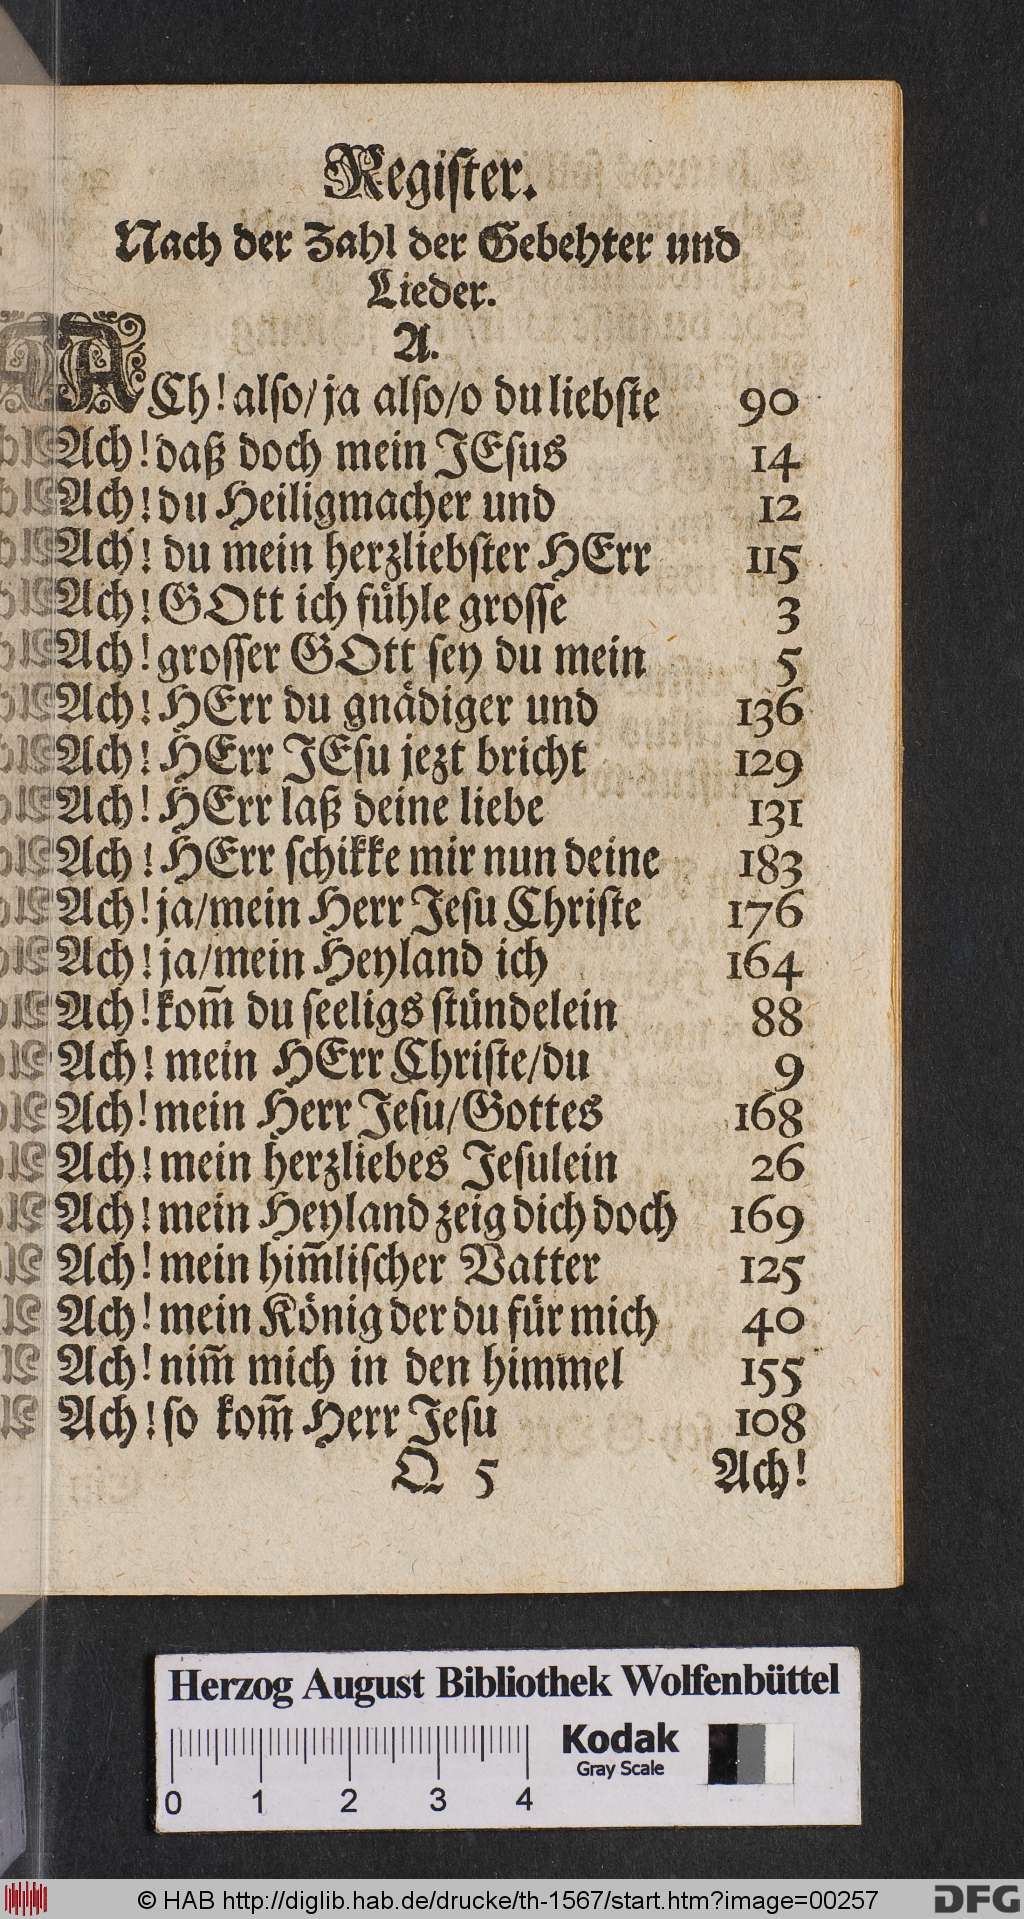 Register.
Nach der Zahl der Gebehter und
Lieder.
A.
ACh! also/ ja also/o du liebste 90
Ach! daß doch mein JEsus 14
Ach! du Heiligmacher und 12
Ach! du mein herzliebster HErr 115
Ach! GOtt ich fühle grosse 3
Ach! grosser GOtt sey du mein 5
Ach! HErr du gnädiger und 136
Ach! HErr JEsu jezt bricht 129
Ach! HErr laß deine liebe 131
Ach! HErr schikke mir nun deine 183
Ach! ja/mein Herr Jesu Christe 176
Ach! ja/mein Heyland ich 164
Ach! kom̃ du seeligs stündelein 88
Ach! mein HErr Christe/du 9
Ach! mein Herr Jesu/Gottes 168
Ach! mein herzliebes Jesulein 26
Ach! mein Heyland zeig dich doch 169
Ach! mein him̃lischer Vatter 125
Ach! mein König der du für mich 40
Ach! nim̃ mich in den himmel 155
Ach! so kom̃ Herr Jesu 108
Q 5 Ach!
Herzog August Bibliothek Wolfenbüttel
Kodak
Gray Scale
0 1 2 3 4
© HAB http://diglib.hab.de/drucke/th-1567/start.htm?image=00257
DFG